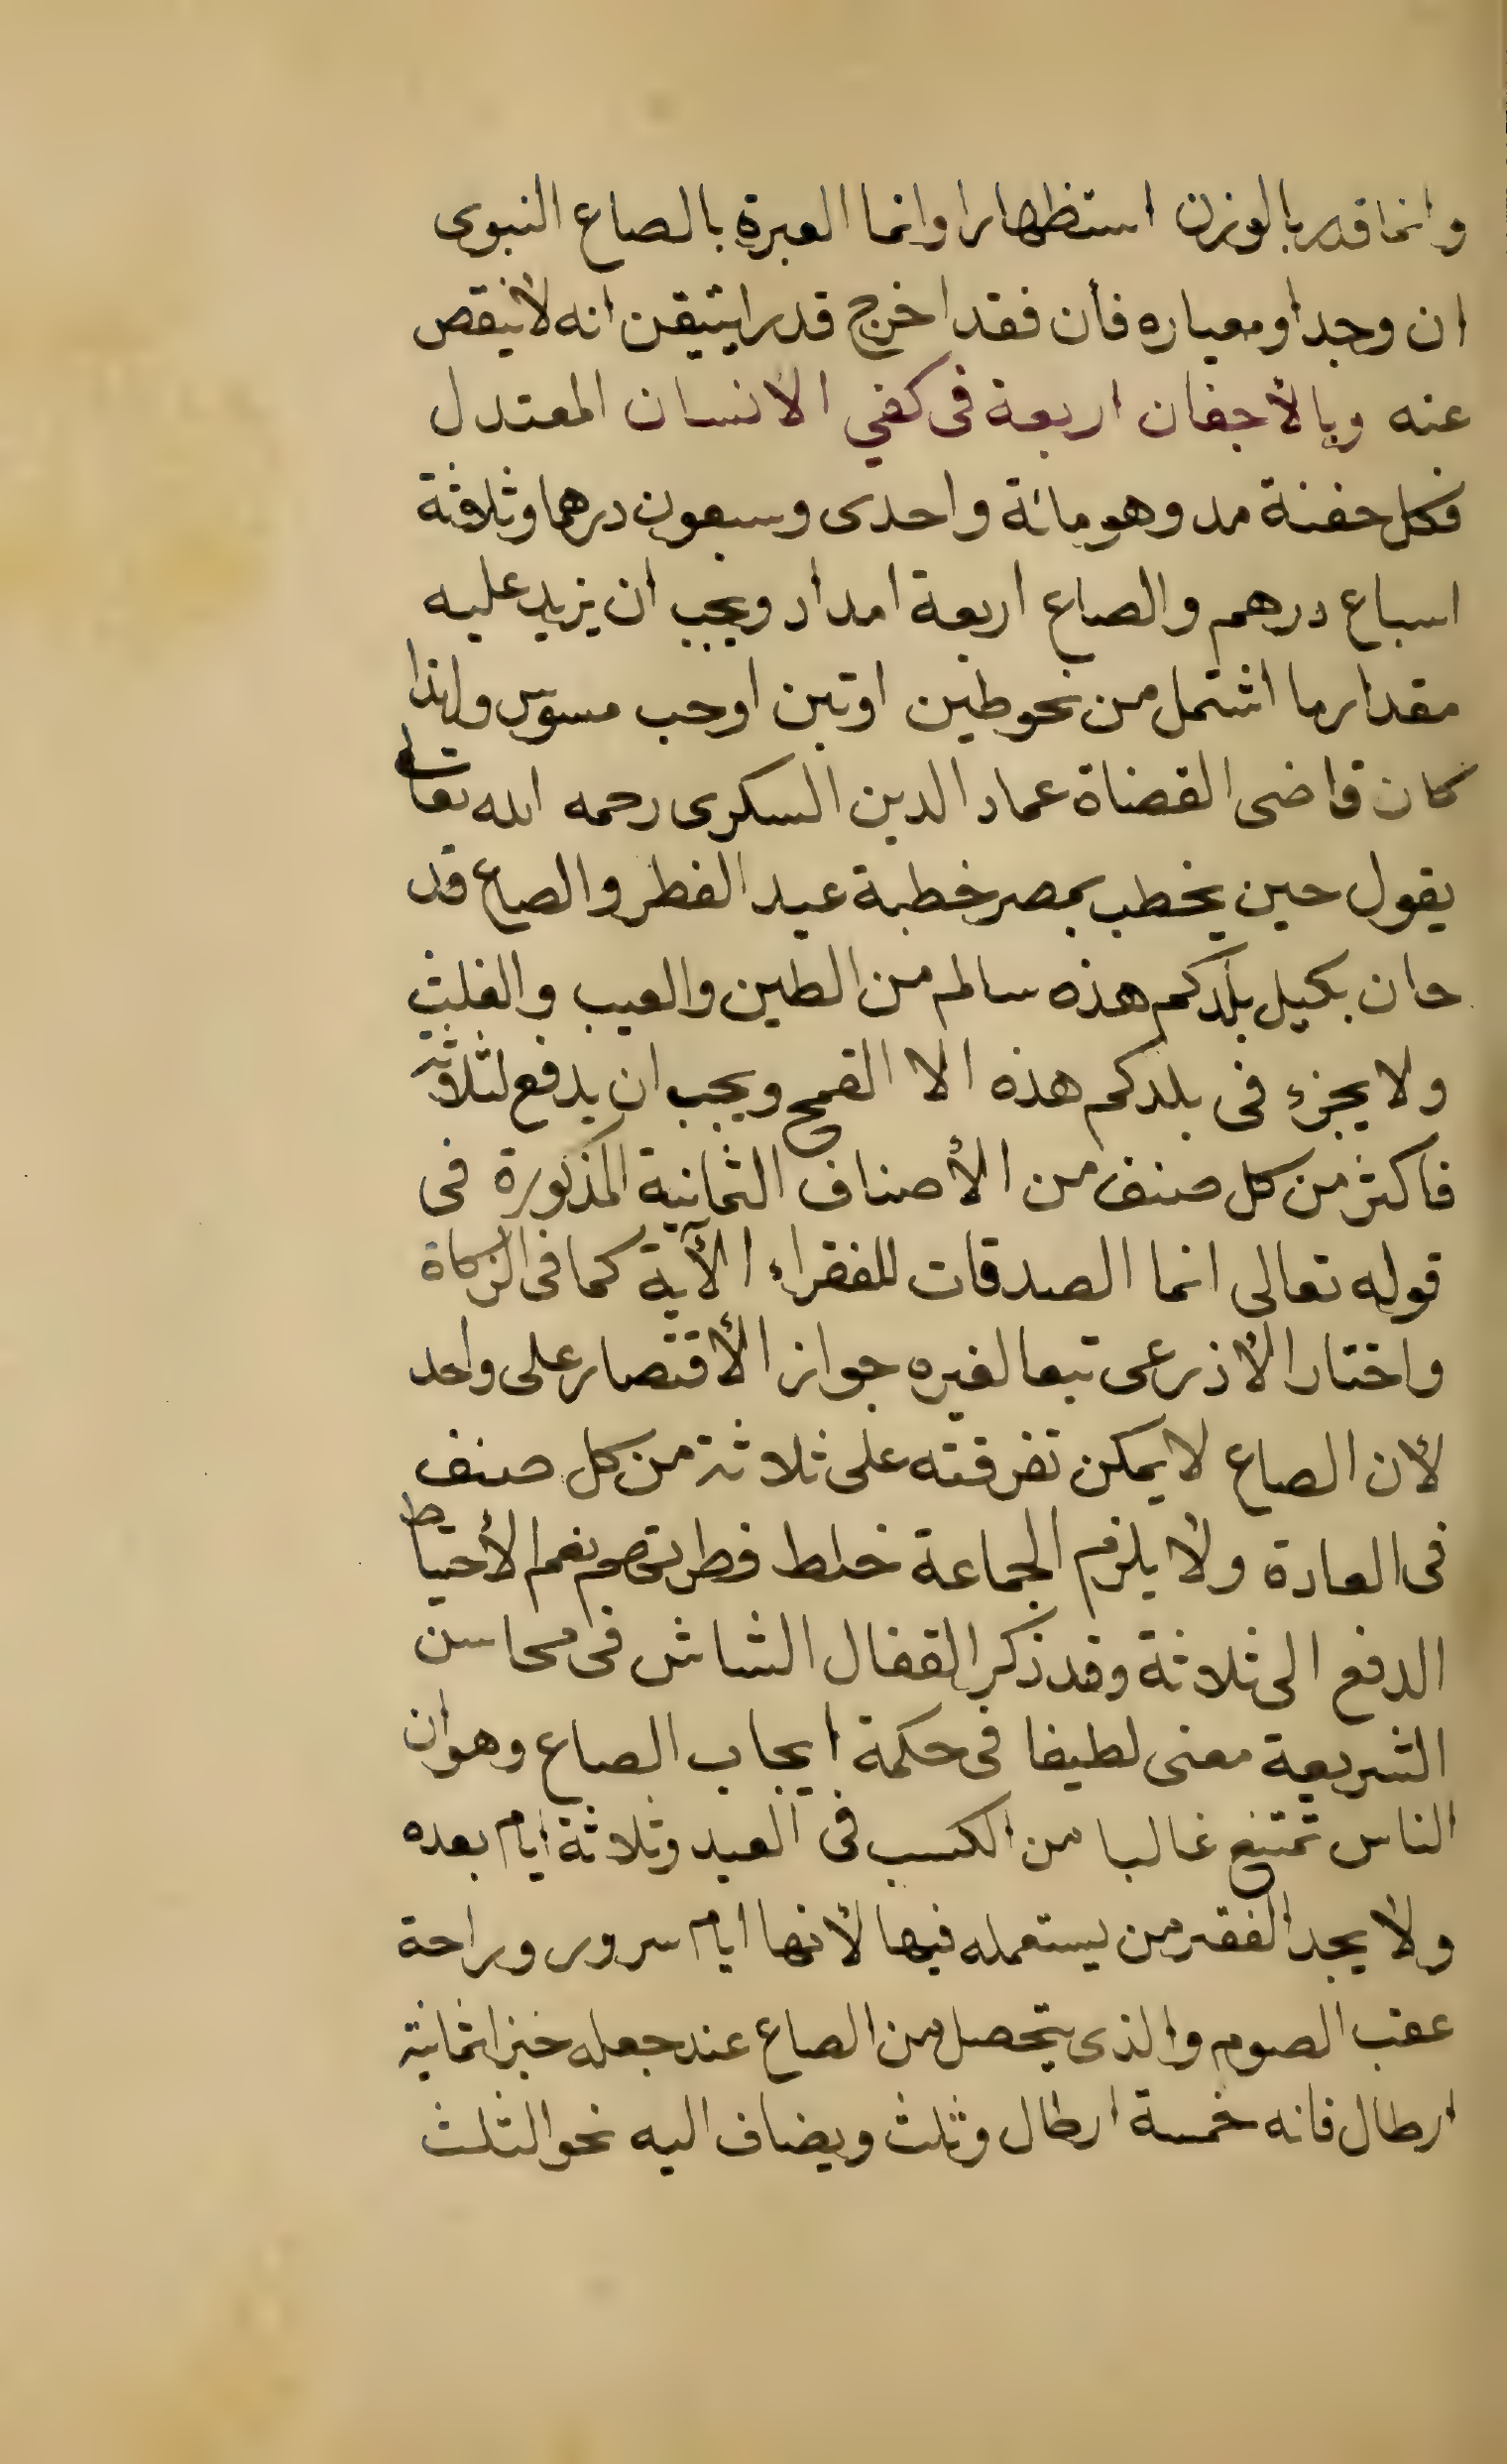 وانما قدر بالوزن استظهارا وانما العبرة بالصاع النبوى
ان وجد او معياره فأن فقد اخرج قدرا يتيقن انه لا ينقص
عنه وبالأجفان اربعة فى كفي الانسان المعتدل
فكل حفنة مد وهو مائة واحدى وسبعون درهما وثلاثة
اسباع درهم والصاع اربعة امداد ويجب ان يزيد عليه
مقدار ما اشتمل من نحو طين او تبن او حب مسوس ولهذا
كان قاضى القضاة عماد الدين السكرى رحمه الله تعالى
يقول حين يخطب بمصر خطبة عيد الفطر والصاع قد
حان بكيل بلدكم هذه سالم من الطين والعيب والغلث
ولا يجزء فى بلدكم هذه الا القمح ويجب ان يدفع لثلاثة
فاكثر من كل صنف من الأصناف الثمانية المذكورة فى
قوله تعالى انما الصدقات للفقراء الآية كما فى الزكاة
واختار الأذرعى تبعا لغيره جواز الأقتصار على واحد
لأن الصاع لا يمكن تفرقته على ثلاثة من كل صنف
فى العادة ولا يلزم الجماعة خلط فطرتهم نعم الأحتياط
الدفع الى ثلاثة وقد ذكر القفال الشاش فى محاسن
الشريعة معنى لطيفا فى حكمة ايجاب الصاع وهو ان
الناس تمتنع غالبا من الكسب فى العيد وثلاثة ايام بعده
ولا يجد الفقير من يستعمله فيها لأنها ايام سرور وراحة
عقب الصوم والذى يتحصل من الصاع عند جعله خبزا ثمانية
ارطال فانه خمسة ارطال وثلث ويضاف اليه نحو الثلث